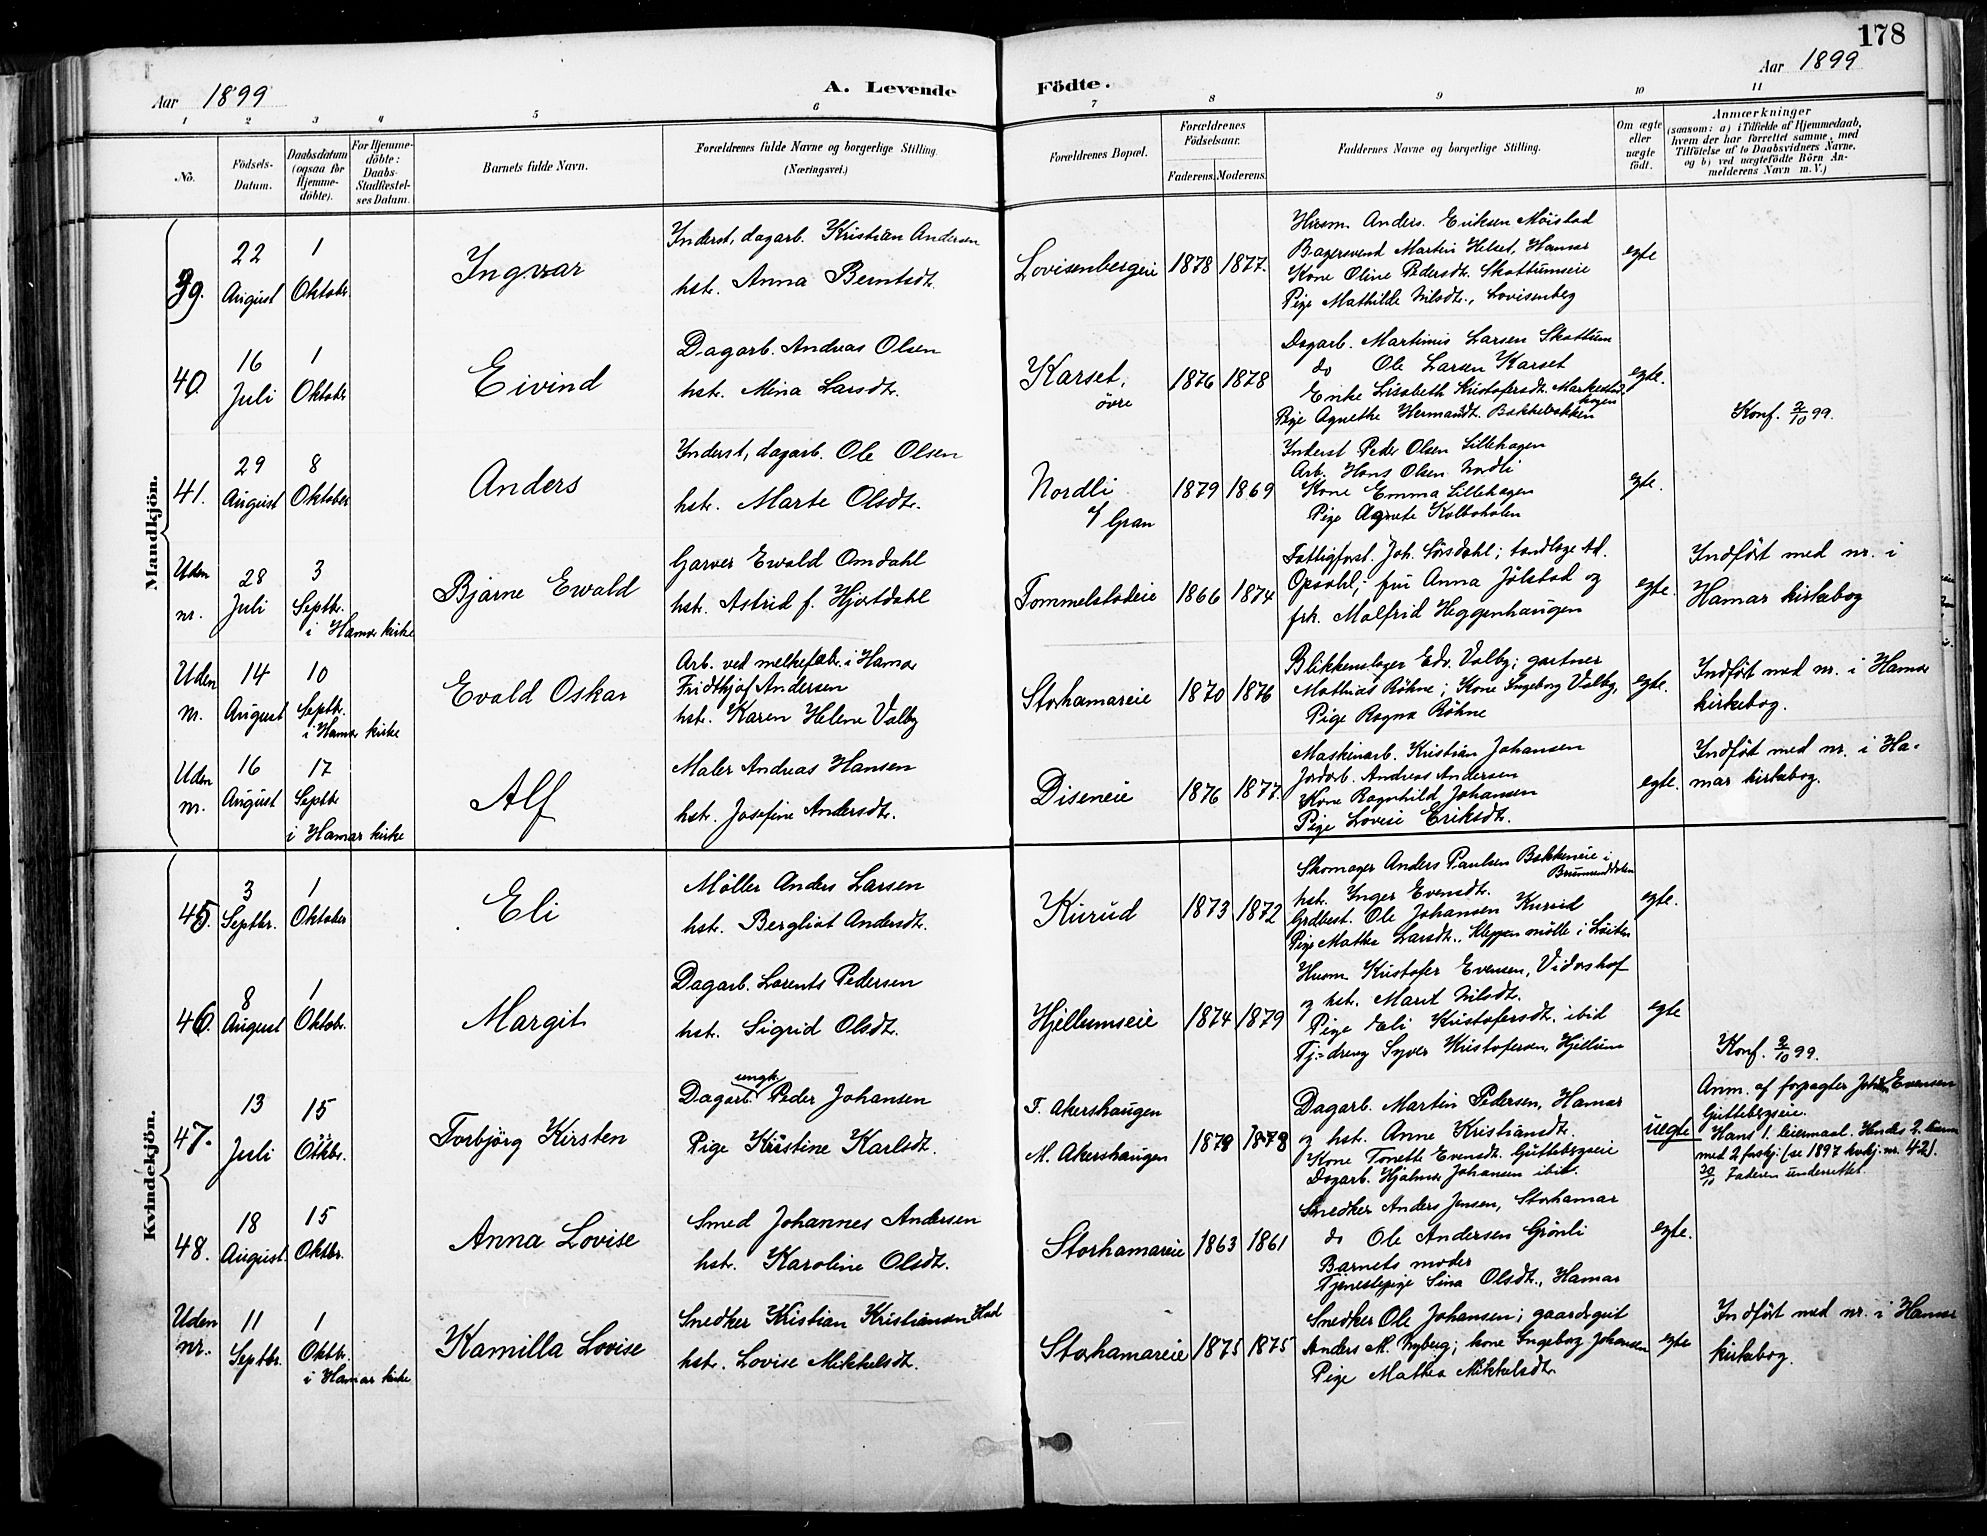 178
Aar 1899
A. Levende Födte.
Aar 1899
1 2 3 4 5 6 7 8 9 10 11
No.
Födsels-Datum.
Daabsdatum (ogsaa for Hjemme-döbte).
For Hjemme-döbte: Daabs-Stadfæstel-ses Datum.
Barnets fulde Navn.
Forældrenes fulde Navne og borgerlige Stilling. (Næringsvei.)
Forældrenes Bopæl.
Forældrenes Födselsaar.
Faderens. Moderens.
Faddernes Navne og borgerlige Stilling.
Om ægte eller uægte födt.
Anmærkninger
(saasom: a) i Tilfælde af Hjemmedaab, hvem der har forrettet samme, med Tilföielse af to Daabsvidners Navne, og b) ved uægtefödte Börn An-melderens Navn m. V.)
Mandkjön.
39. 22 August 1 Oktobr. Ingvar
Inderst, dagarb. Kristian Andersen
hst. Anna Berntsdt.
Lovisenbergeie 1878 1877.
Husm. Anders Eriksen Möistad
Bagersvend Martin Helset, Hamar
Kone Oline Pedersdt. Skattumseie
Pige Mathilde Nilsdt., Lovisenberg
egte
40. 16 Juli 1 Oktober Eivind
Dagarb. Andreas Olsen
hst. Mina Larsdt.
Karset, övre 1876 1878
Dagarb. Martinus Larsen Skattum
do Ole Larsen Karset
Enke Lisabeth Kristofersdt. Markestad-hagen
Pige Agnethe Hermansdt. Bakkebakken
egte.
Konf. 2/10 99.
41. 29 August 8 Oktober Anders
Inderst, dagarb. Ole Olsen
hst. Marte Olsdt.
Nordli
Gran 1879 1869
Inderst Peder Olsen Lillehagen
Arb. Hans Olsen Nordli
Kone Emma Lillehagen
Pige Agnete Kolboholen
egte.
Uden nr. 28 Juli 3 Septbr. i Hamar kirke Bjarne Ewald
Garver Ewald Omdahl
hst. Astrid f. Hjortdahl
Tommelstadeie 1866 1874
Fattigforst. Joh. Sörsdahl; tandlæge Ad.
Opsahl; fru Anna Jölstad og
frk. Malfrid Heggenhaugen
egte.
Indfört med nr. i
Hamar kirkebog
Uden nr. 14 August 10 Septbr. i Hamar kirke Evald Oskar
Arb. ved melkefabr. i Hamar
Fridthjof Andersen
hst. Karen Helene Valby
Storhamareie 1870 1876
Blikkenslager Edv. Valby; gartner
Mathias Röhne; Kone Ingeborg Valby,
Pige Ragna Röhne
egte.
Indfört med nr. i Hamar
kirkebog.
Uden nr. 16 August 17 Septbr i Hamar kirke Alf
Maler Andreas Hansen
hst. Josefine Andersdt.
Diseneie 1876 1877.
Maskinarb. Kristian Johansen
Jordarb. Andreas Andersen
Kone Ragnhild Johansen
Pige Lovise Eriksdt.
egte.
Indfört med nr. i Ha-
mar kirkebog.
Kvindekjön.
45. 3 Septbr. 1 Oktober Eli
Möller Anders Larsen
hst. Bergliot Andersdt.
Kurud 1873 1872
Skomager Anders Paulsen Bakkeneie i Brummunddalen
hst. Inger Evensdt.
Grdbest. Ole Johansen Kurud
Pige Mathea Larsdt., Kleppen mölle i Löiten
egte.
46. 8 August 1 Oktobr. Margit
Dagarb. Lorents Pedersen
hst. Sigrid Olsdt.
Hjellumseie 1874 1879
Husm. Kristofer Evensen, Vidarshof
og hst. Marit Nilsdt.
Pige Eli Kristofersdt. ibid
Tj.-dreng Syver Kristofersen, Hjellum
egte
Konf. 2/10 99.
47. 13 Juli 15 Oktbr. Torbjörg Kirsten
Dagarb. ungk. Peder Johansen
Pige Kirstine Karlsdt.
F. Akershaugen
M. Akershaugen 1878 1878
Dagarb. Martin Pedersen, Hamar
og hst. Anne Kristiansdt.
Kone Tonette Evensdt. Guttebergseie
Dagarb. Hjalmar Johansen ibid.
uegte
Anm. af forpagter Johan Evensen
Guttebergseie.
Hans 1. leiermaal. Hendes 2.
med 2 forskj. (se 1897 kvkj. nr. 42).
20/10 Faderen underrettet.
48. 18 August. 15 Oktbr. Anna Lovise
Smed Johannes Andersen
hst. Karoline Olsdt.
Storhamareie 1863 1861
Snedker Anders Jensen, Storhamar
do Ole Andersen Grönli
Barnets moder
Tjenestepige Sina Olsdt., Hamar
egte.
Uden nr. 11 Septbr. 1 Oktbr. i Hamar kirke Kamilla Lovise
Snedker Kristian Kristiansen
hst. Lovise Mikkelsdt.
Storhamareie 1875 1875
Snedker Ole Johansen; gaardsgut
Anders M. Nyberg; kone Ingeborg Johansen
Pige Mathea Mikkelsdt.
egte
Indfört med nr. i Hamar
kirkebog.